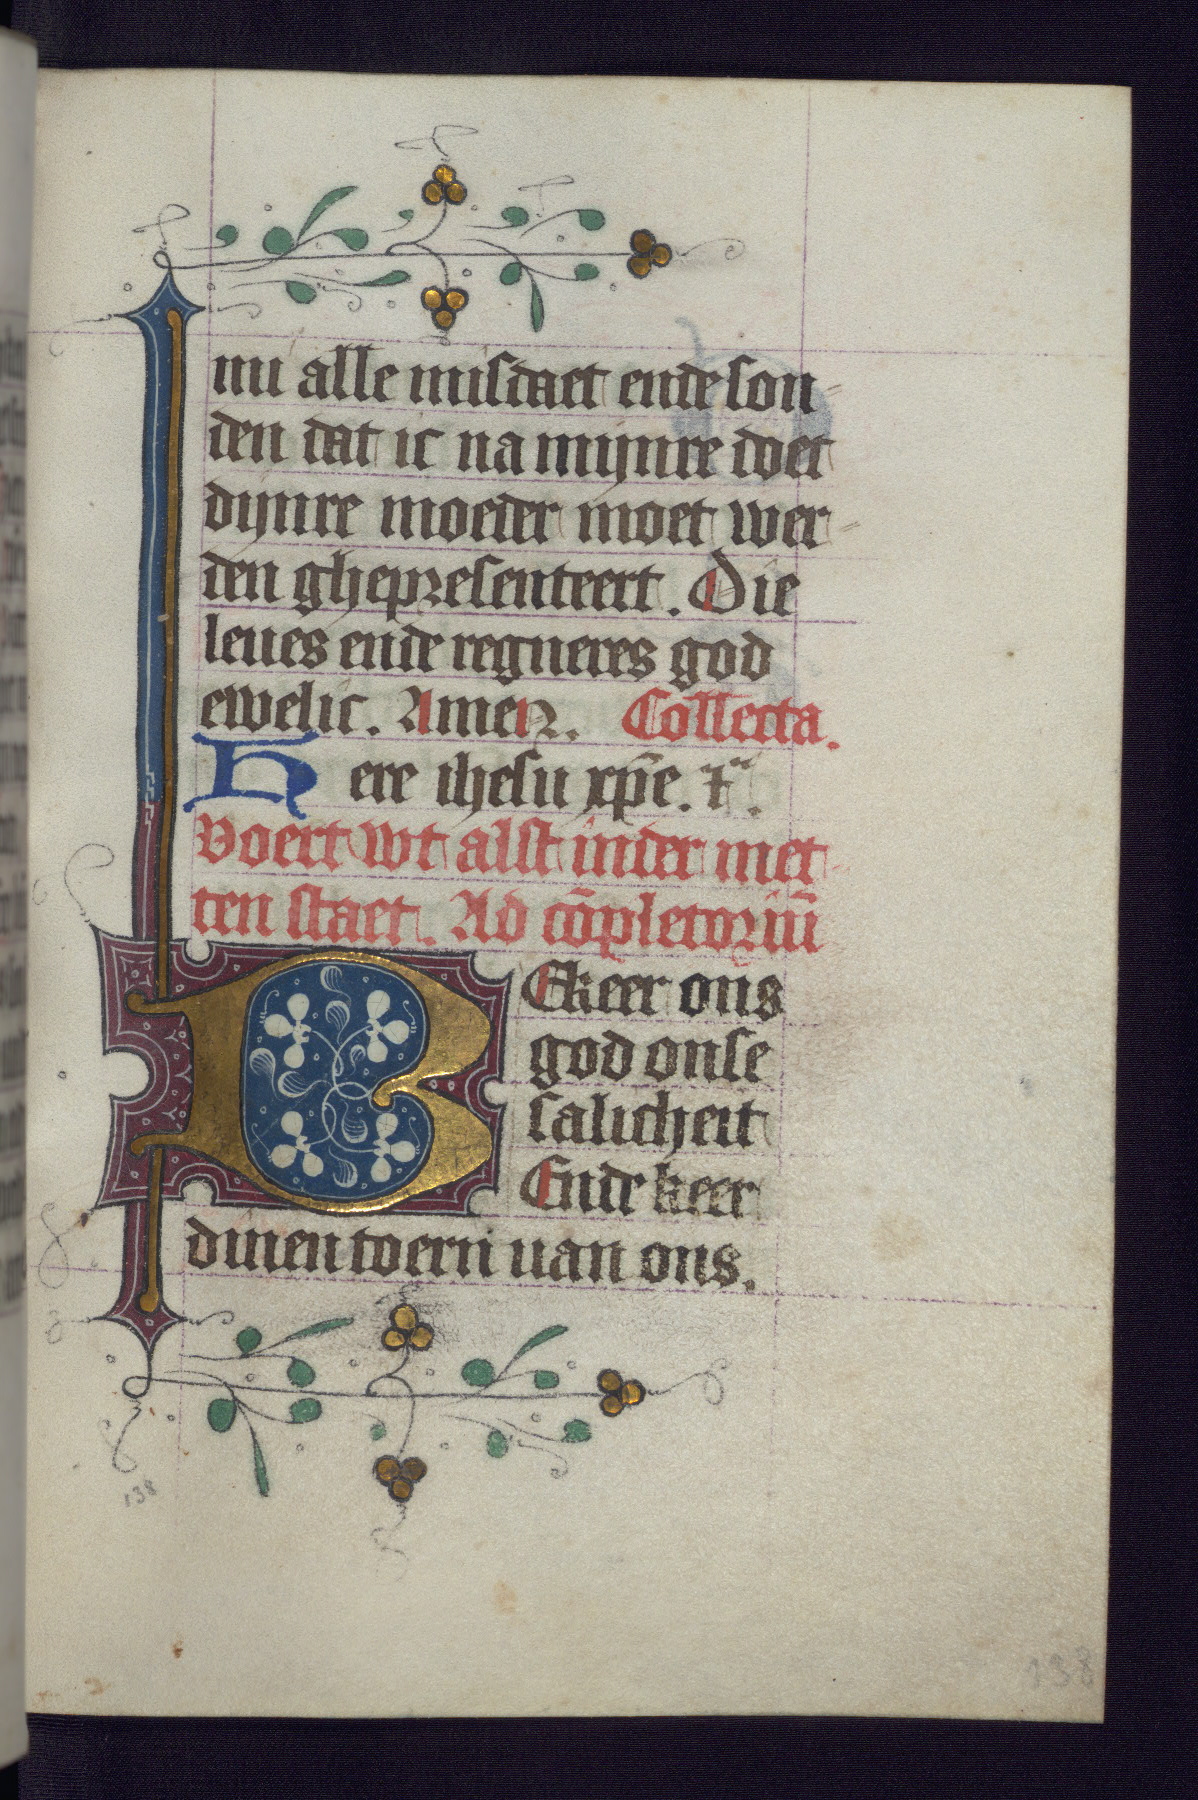 mi alle misdaet ende son
den dat ic na mijnre doet
dijnre moeder moet wer
den ghepresenteert. Die
leues ende regneres god
ewelic. Amen. Collecta.
Here ihesu xp̄e. ⁊c.
Voert wt alst inder met
ten staet. Ad cōpletoriū
BEkeer ons
god onse
salicheit
Ende keer
dinen toern uan ons.
138
138